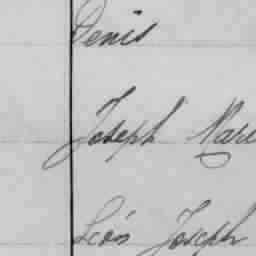 Denis
Joseph Mari
Léon Joseph